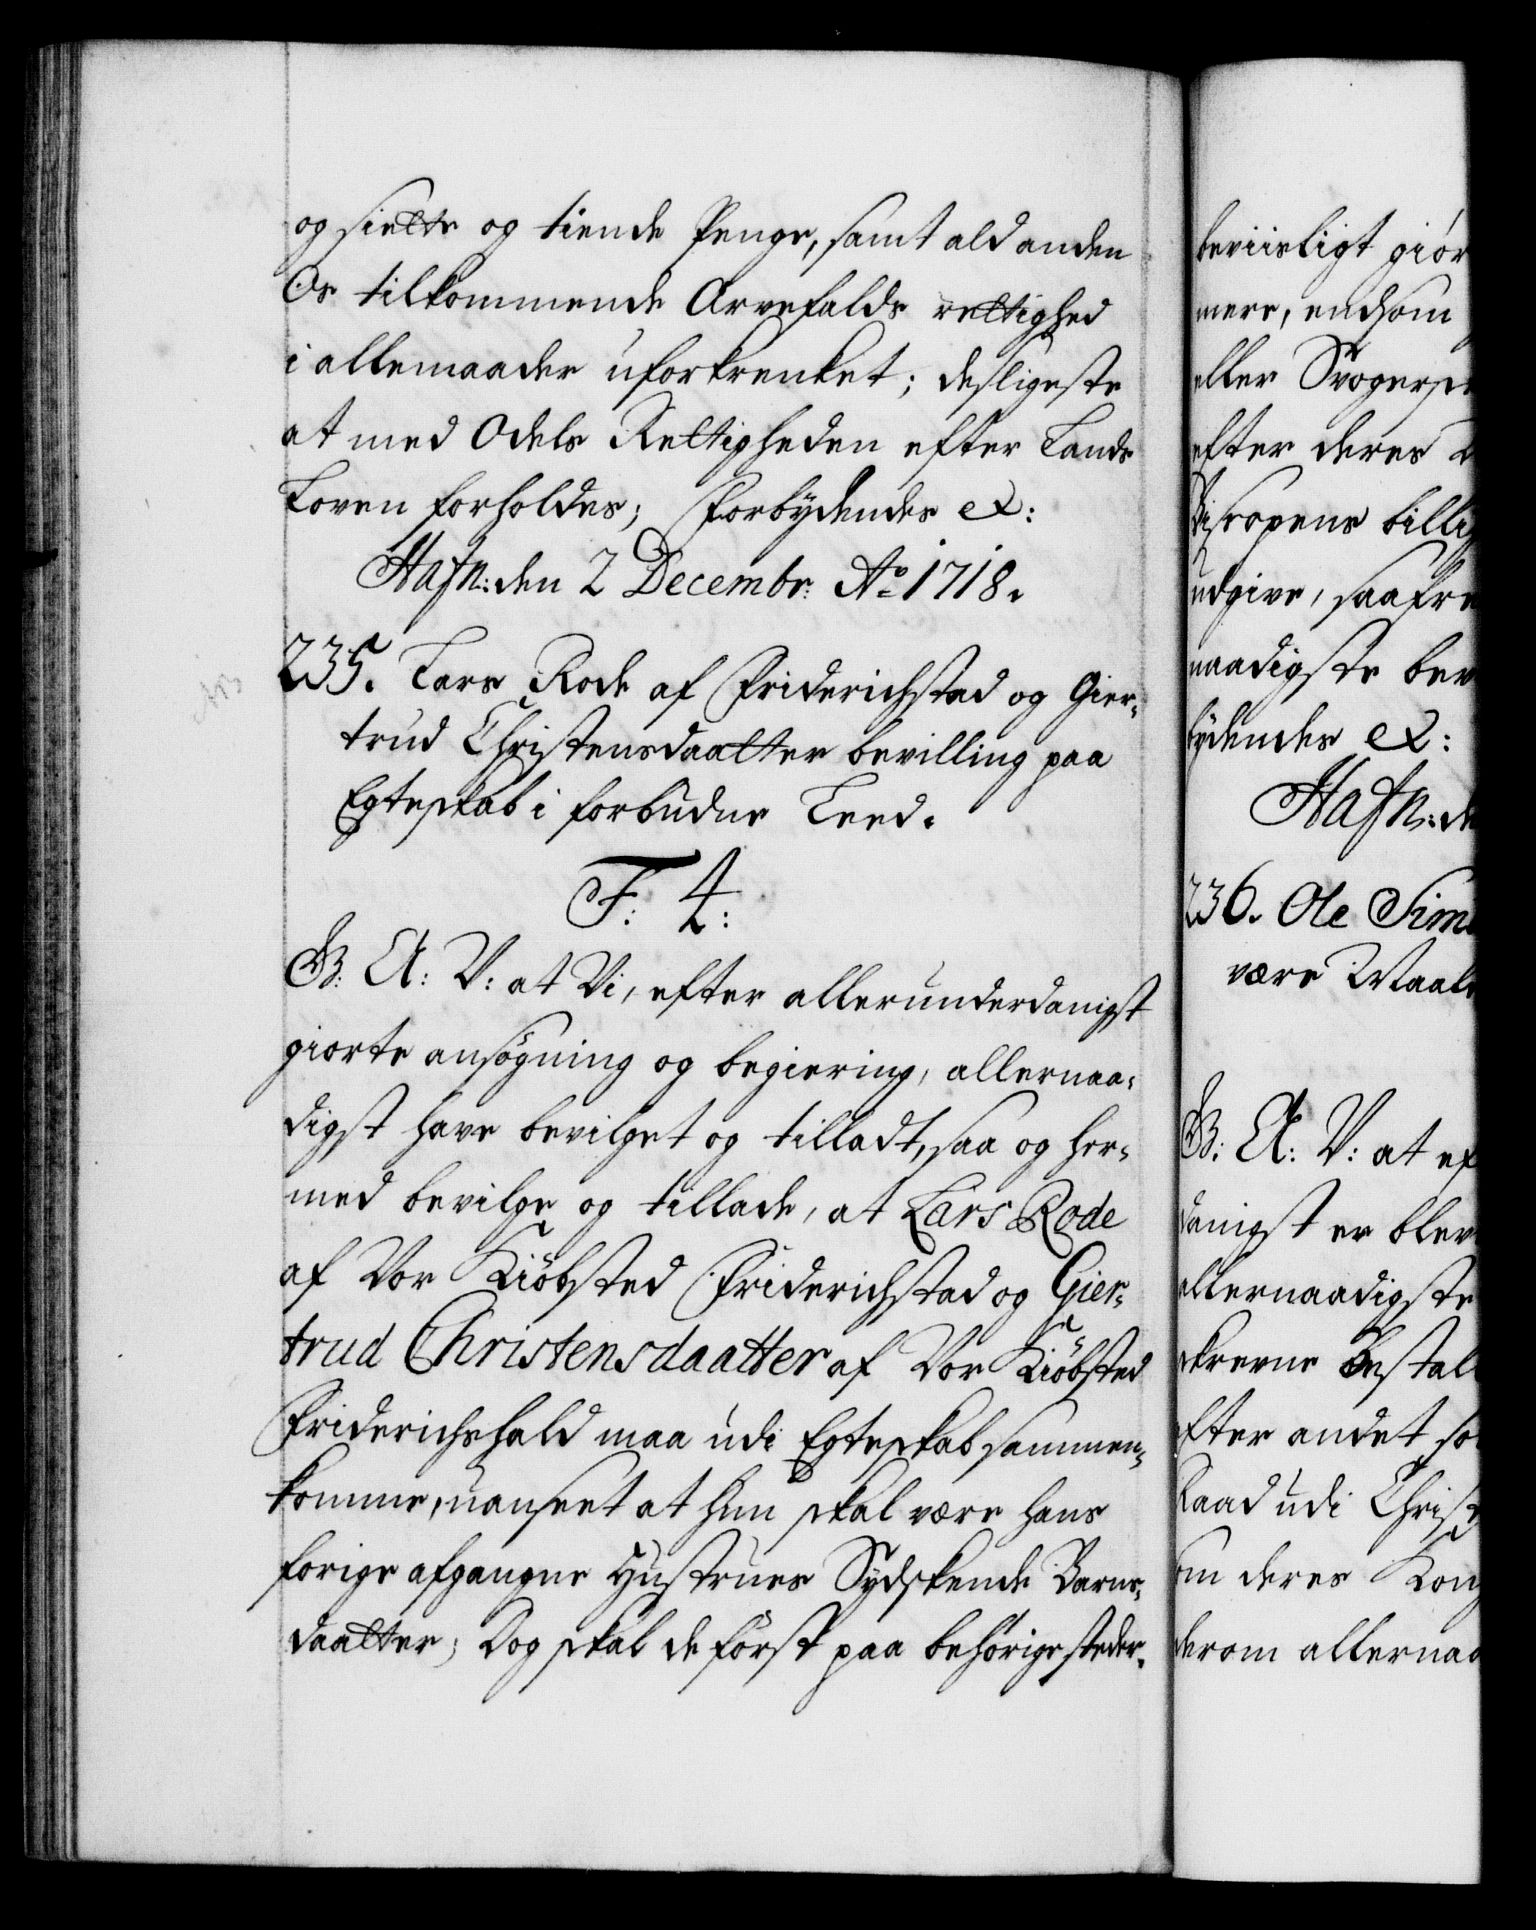 og sielte og tiende Penge, samt ald anden
Os tilkommende Arvefalds rettighed
i allemaader uforkrenket; desligeste
at med Odels Rettigheden efter Lands
Loven forholdes; Forbydendes etc:
Hafn: den 2 Decembr: Ao 1718.
235. Lars Rode af Friderichstad og Gier-
trud Christensdaatter bevilling paa
Egteskab i forbudne Leed.
F: 4:
G: A: V: at Vi, efter allerunderdanigst
giorte ansøgning og begiering, allernaa-
digst have bevilget og tilladt, saa og her-
med bevilge og tillade, at Lars Rode
af Vor Kiöbsted Friderichstad og Gier-
trud Christensdaatter af Vor Kiöbsted
Friderichshald maa udi Egteskab sammen-
komme, uanseet at hun skal være hans
forige afgangne Hustrues Sydskende Barns-
daatter; Dog skal de först paa behörige steder-
beviisligt giör
mere, endsom
eller Svogersk
efter deres
Biscopens billig
udgive, saafre
naadigste bev
bydendes etc:
Hafn: de
236. Ole Sim
være Maal
G: A: V: at ef
danigst er blev
allernaadigste
skrevne Bestal
efter andet so
Raad udi Christ
om deres Kong
derom allernaa